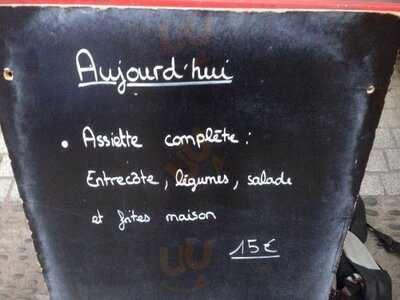 Aujourd'hui
• Assiette complète :
Entrecôte, légumes, salade
et frites maison
15€